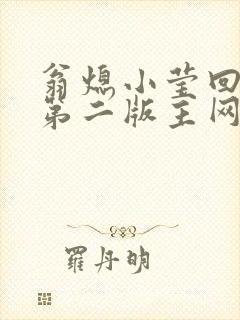 翁熄小莹回
第二版主网
羅丹明